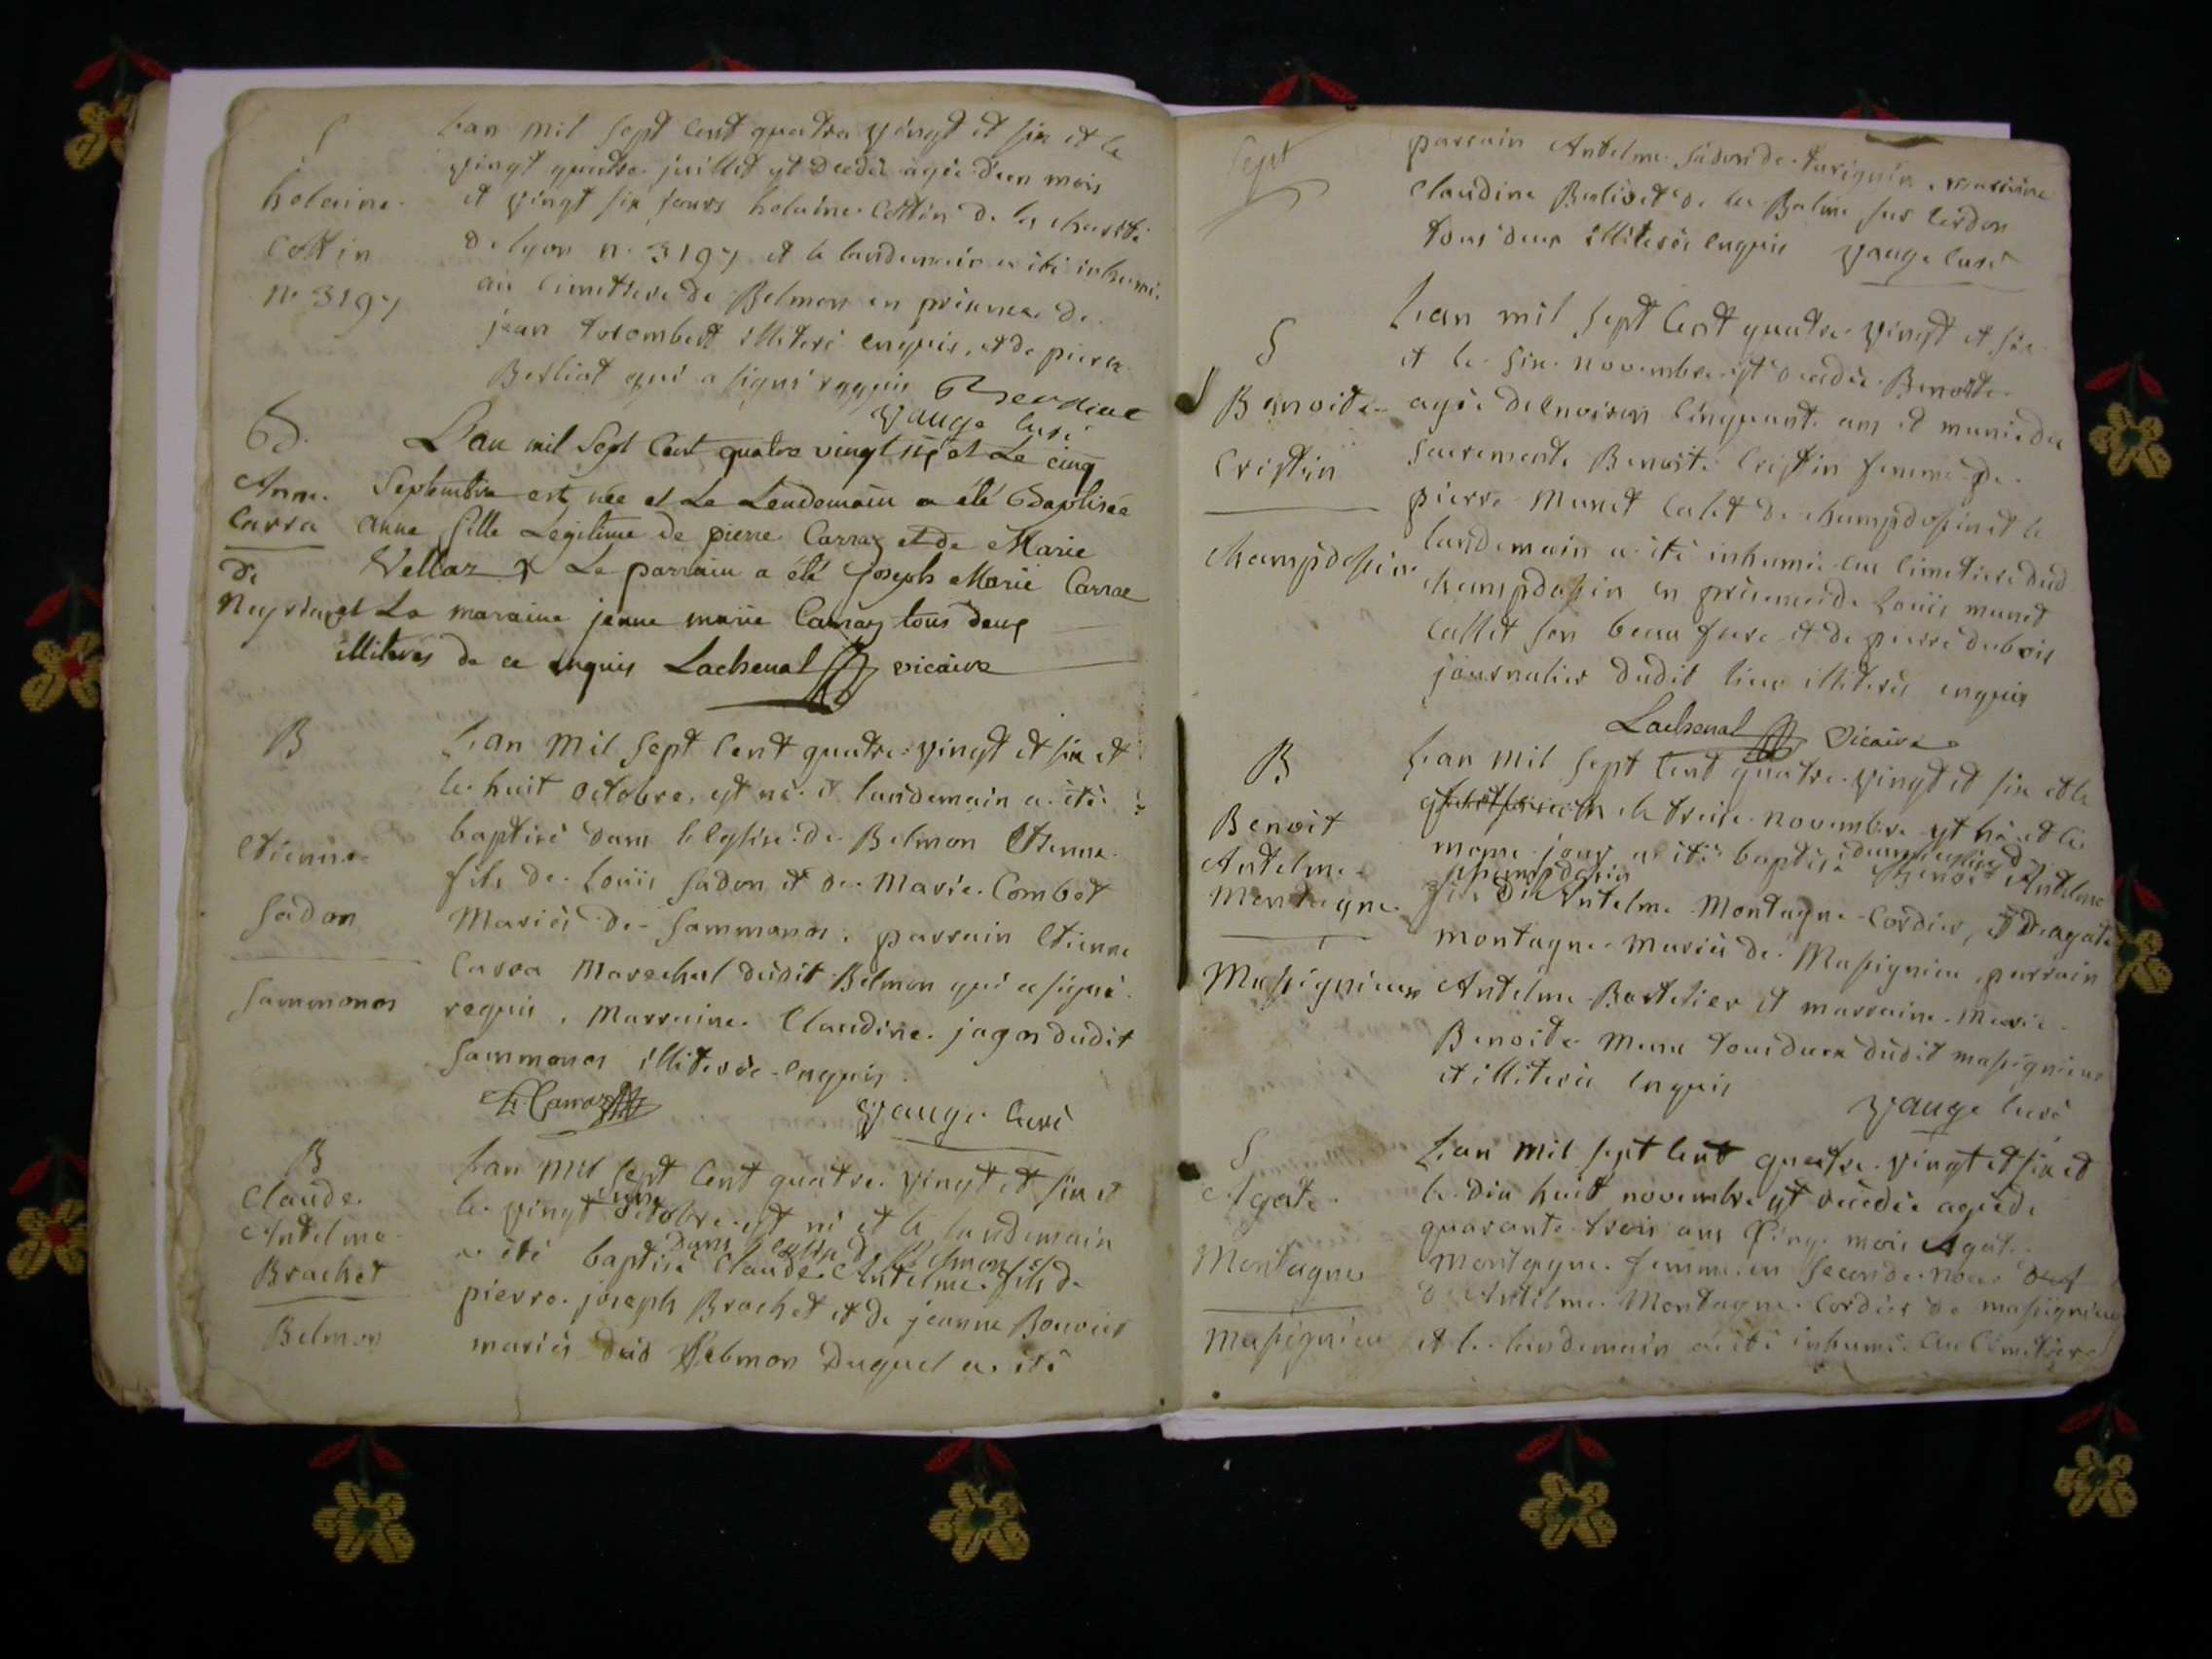 S
helaine
Cottin
n° 3197
Lan mil sept cent quatre vingt et six et le
vingt quatre juillet est decedée agée d'un mois
et vingt six jours helaine Cottin de la charité
de lyon n° 3197 et le landemain a été inhumé
au cimettere de Belmon en présence de
jean trocombert illiteré enquis, et de pierre
Berliat qui a signé requis Berliat
Vauge curé
B
Anne
Carra
de
Neyrieu
Lan mil Sept Cent quatre vingt six et Le cinq
Septembre est née et Le Lendemain a été Baptisée
anne fille Legitime de pierre Carraz et de Marie
Vellaz Le parrain a été Joseph Marie Carraz
et La maraine jeanne marie Carraz tous deux
illiterés de ce enquis Lachenal vicaire
B
Etienne
Sadon
Sammonos
Lan mil sept cent quatre vingt et six et
le huit octobre, est né et landemain a été
baptisé dans leglise de Belmon Etienne
fils de Louis Sadon et de Marie Combet
Mariés de Sammonos, parrain Etienne
Carra Marechal dudit Belmon qui a signé
requis, Marraine Claudine jagon dudit
Sammonos illiterée enquis
E. Carraz Vauge curé
B
Claude
Antelme
Brachet
Belmon
Lan mil sept cent quatre vingt et six et
le vingt octobre est né et le landemain
a été baptisé dans leglise de Belmon Claude Antelme fils de
pierre joseph Brachet et de jeanne Bouvier
mariés dud Belmon Duquel a été
Sept
parrain Antelme Sadon de tarignin, marraine
Claudine Balivet de la Balme sur Cerdon
tous deux illiterés enquis Vauge curé
S
Benoite
Cristin
champdosin
Lan mil sept cent quatre vingt et six
et le six novembre est decedée Benoite
agée denviron cinquante ans et munie des
sacrements Benoite Cristin femme de
pierre Munet Calet de champdosin et le
landemain a été inhumée au cimetiere dud
champdosin en présence de Louis munet
Callet son beau frere et de pierre dubois
journalier dudit lieu illiterés enquis
Lachenal Vicaire
B
Benoit
Antelme
Montagne
Masignieu
Lan mil sept cent quatre vingt et six et le
le treise novembre est né et le
meme jour a été baptisé dans leglise de
champdosin Benoit Antelme
fils d'Antelme Montagne Cordier, et d'agate
montagne mariés de Masignieu, parrain
Antelme Bortelier et marraine Marie
Benoite Mune tous deux dudit masignieu
et illiterés enquis
Vauge curé
S
Agate
Montagne
Masignieu
Lan mil sept cent quatre vingt et six et
le dix huit novembre est decedée agée de
quarante trois ans cinq mois Agate
Montagne femme en seconde noces
d'Antelme Montagne Cordier de masignieu
et le landemain a été inhumé au Cimetiere